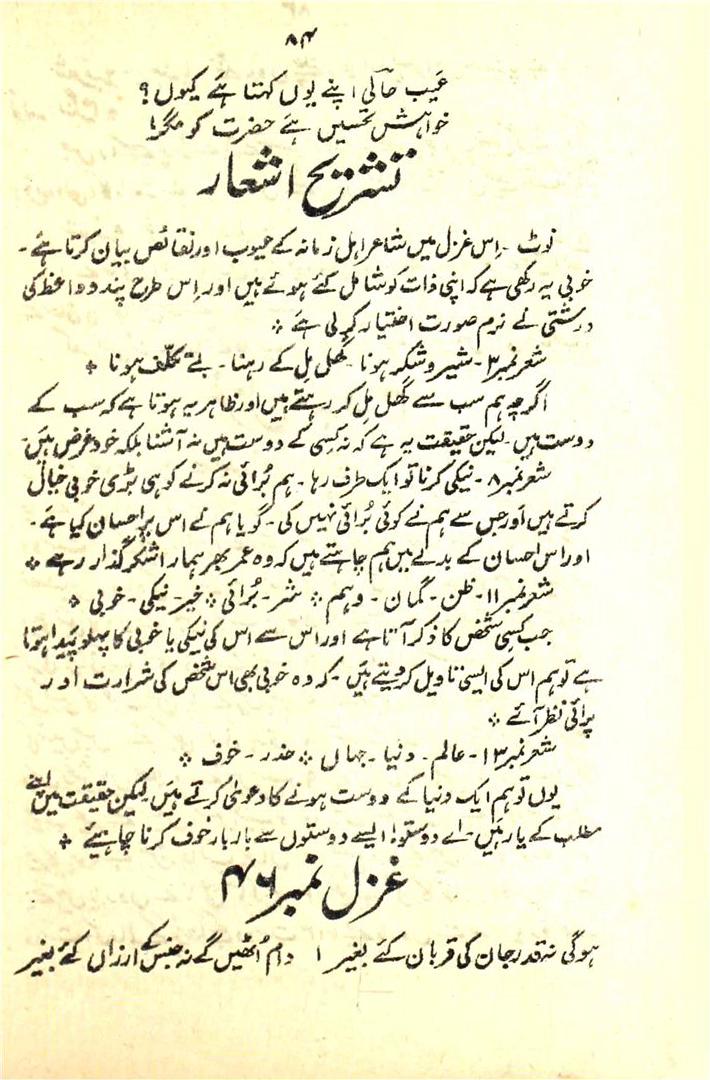 ۸۴
عَیب حالی اپنے یوں کہتا ہے کیوں؟
خواہشِ تحسیں ہے حضرت کو مگر!
تشریح اشعار
نوٹ ۔ اِس غزل میں شاعر اہلِ زمانہ کے عیوب اور نقائص بیان کرتا ہے ۔
خوبی یہ رکھی ہے کہ اپنی ذات کو شامل کئے ہوئے ہیں اور اِس طرح پند و واعظ کی
درشتی نے نرم صورت اختیار کر لی ہے ٭
شعر نمبر ۳۔ شیر و شکر ہونا ۔ گھل مِل کے رہنا ۔ بے تکلّف ہونا ٭
اگرچہ ہم سب سے گھل مِل کر رہتے ہیں اور ظاہر یہ ہوتا ہے کہ سب کے
دوست ہیں ۔ لیکن حقیقت یہ ہے کہ نہ کِسی کے دوست ہیں نہ آشنا بلکہ خود غرض ہیں ۔
شعر نمبر ۸ ۔ نیکی کرنا تو ایک طرف رہا ۔ ہم بُرائی نہ کرنے کو ہی بڑی خوبی خیال
کرتے ہیں اور جس سے ہم نے کوئی بُرائی نہیں کی ۔ گویا ہم نے اس پر احسان کیا ہے ۔
اور اس احسان کے بدلے میں ہم چاہتے ہیں کہ وہ عمر بھر ہمارا شکر گذار رہے ٭
شعر نمبر ۱۱ ۔ ظن ۔ گمان ۔ وہم ٭ شر ۔ بُرائی ٭ خیر ۔ نیکی ۔ خوبی ٭
جب کِسی شخص کا ذکر آتا ہے اور اس سے اس کی نیکی یا خوبی کا پہلو پیدا ہوتا
ہے تو ہم اس کی ایسی تاویل کر دیتے ہیں ۔ کہ وہ خوبی بھی اس شخص کی شرارت اور
برائی نظر آئے ٭
شعر نمبر ۱۳ ۔ عالم ۔ دنیا ۔ جہاں ٭ حذر ۔ خوف ٭
یوں تو ہم ایک دنیا کے دوست ہونے کا دعویٰ کرتے ہیں ۔ لیکن حقیقت میں اپنے
مطلب کے یار ہیں ۔ اے دوستو! ایسے دوستوں سے بار بار خوف کرنا چاہیئے ٭
غزل نمبر ۴۶
ہوگی نہ قدر جان کی قرباں کئے بغیر ۱ دام اُٹھیں گے نہ جنس کے ارزاں کئے بغیر